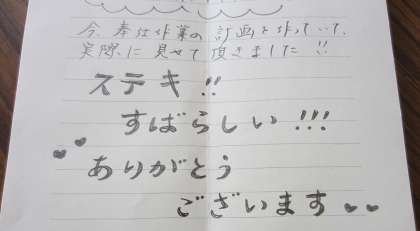 今、奉仕作業の計画を作っていて、
実際に見せて頂きました!!
ステキ!!
すばらしい!!!
ありがとう
ございます